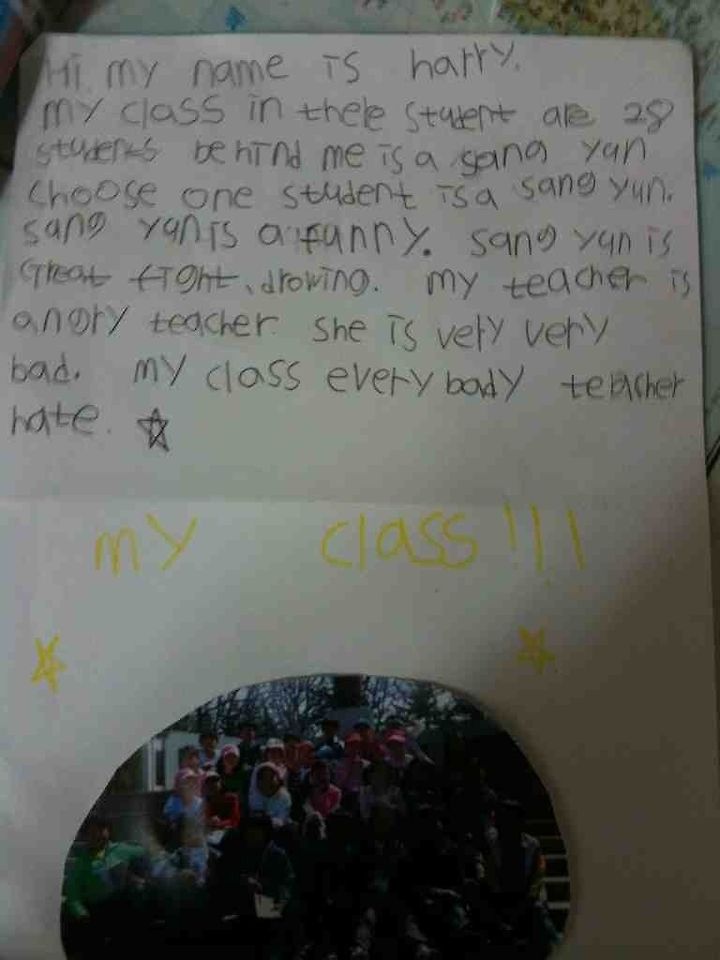 Hi my name is harry.
my class in there student are 28
students behind me is a sang yun
choose one student is a sang yun.
sang yun is a funny. sang yun is
Great fight, drowing. my teacher is
angry teacher she is very very
bad. my class everybody teacher
hate.
my class!!!